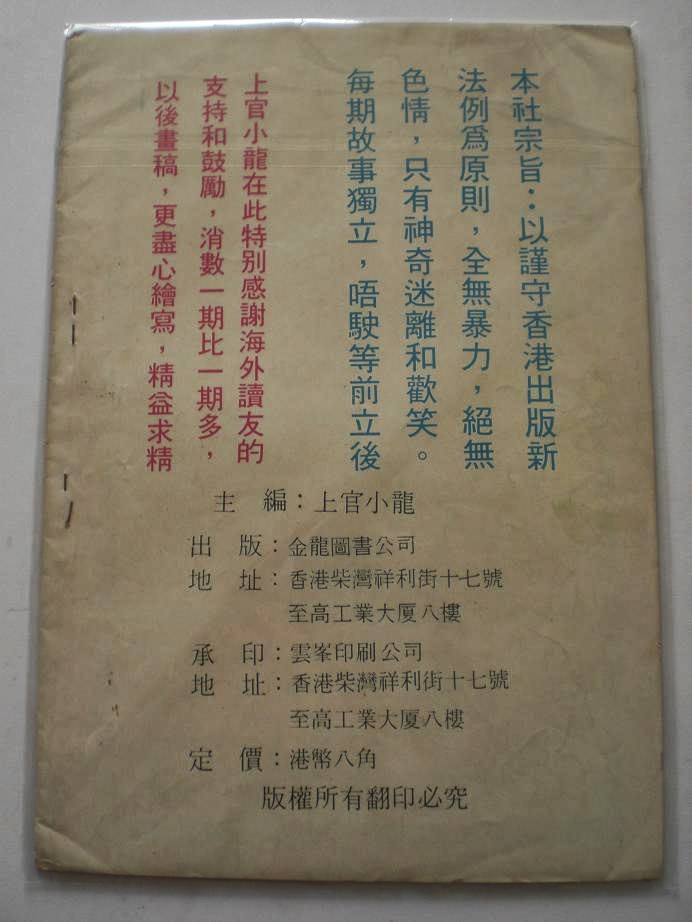 本社宗旨：以謹守香港出版新
法例爲原則，全無暴力，絕無
色情，只有神奇迷離和歡笑。
每期故事獨立，唔駛等前立後
上官小龍在此特别感謝海外讀友的
支持和鼓勵，消數一期比一期多，
以後畫稿，更盡心繪寫，精益求精
主　編：上官小龍
出　版：金龍圖書公司
地　址：香港柴灣祥利街十七號
至高工業大厦八樓
承　印：雲峯印刷公司
地　址：香港柴灣祥利街十七號
至高工業大厦八樓
定　價：港幣八角
版權所有翻印必究